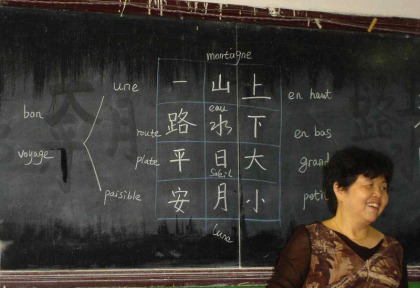 montagne
une 一 山 上 en haut
bon
eau
路 水 下
route en bas
voyage plate 平 日 大 grand
Soleil
paisible 安 月 小 petit
lune